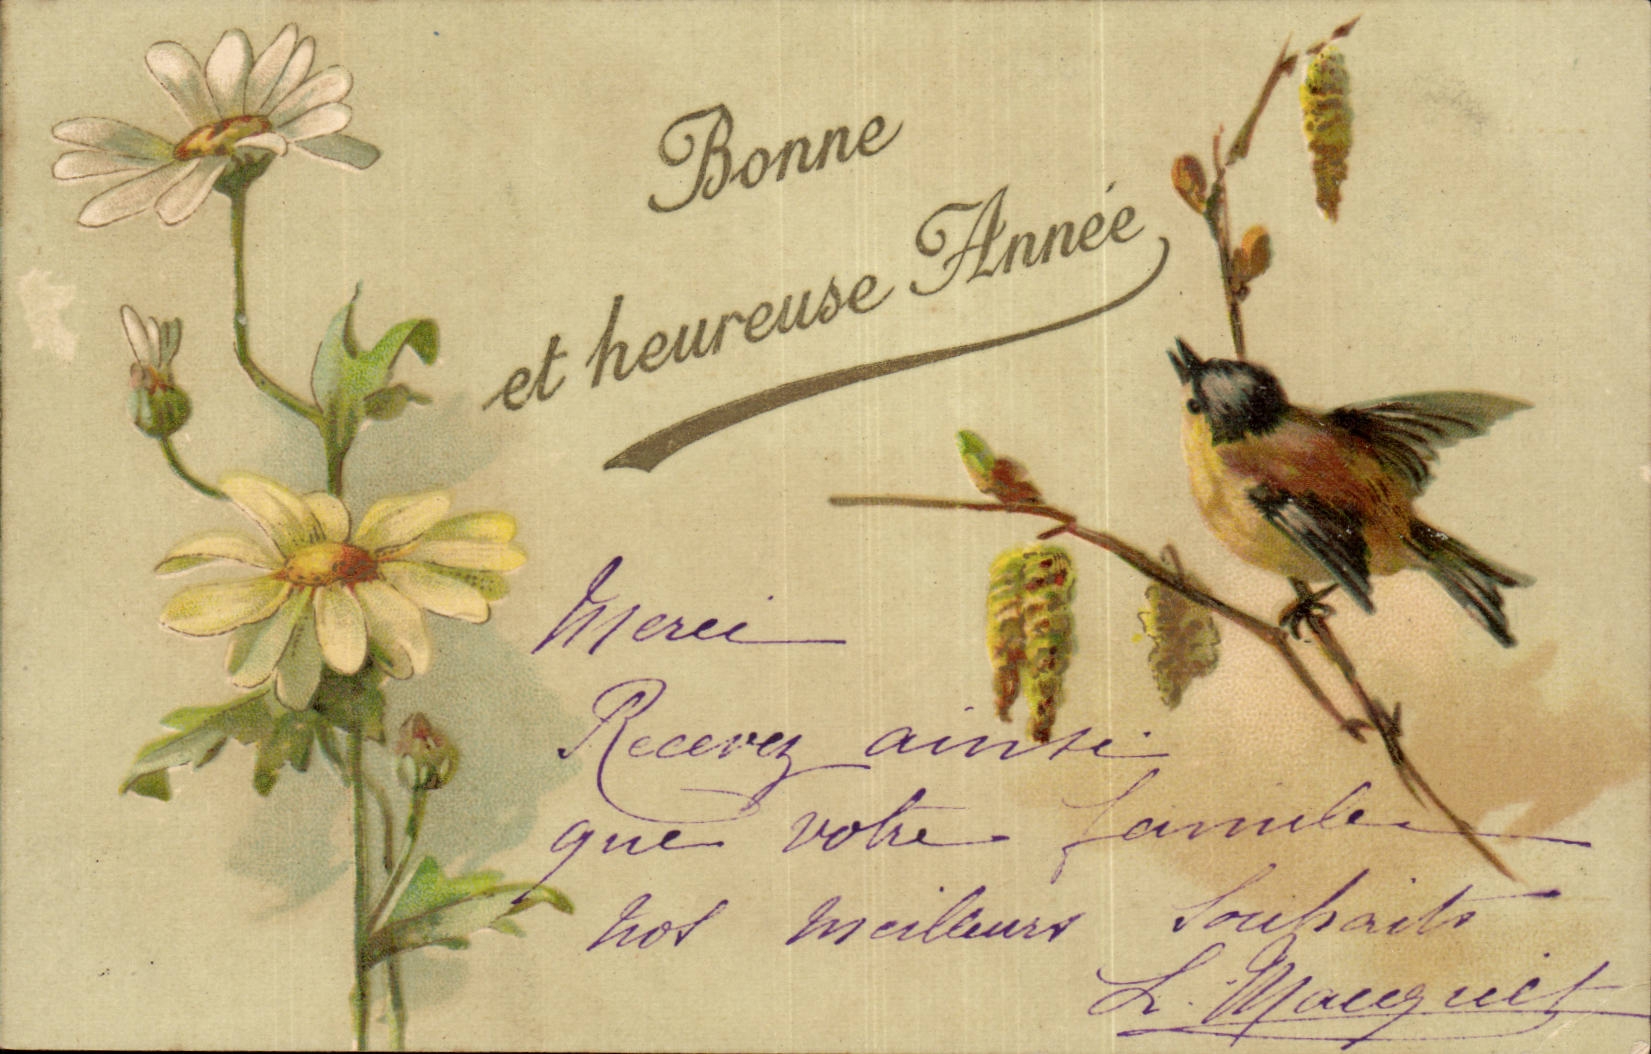 Bonne
et heureuse Année
Merci
Recevez ainsi
que votre famille
nos meilleurs souhaits
L.